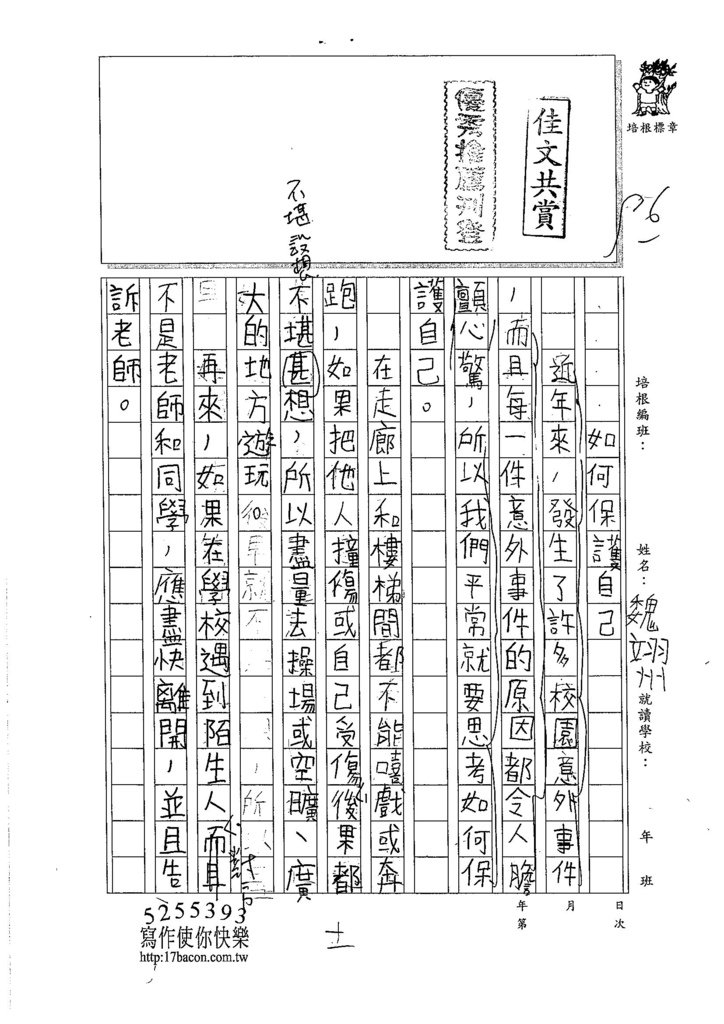 培根標章
佳文共賞
優秀推薦刊登
培根編班：
姓名：魏翊州
就讀學校：
年 班
年 月 日
第 次
如何保護自己
近年來，發生了許多校園意外事件
，而且每一件意外事件的原因都令人膽
顫心驚，所以我們平常就要思考如何保
護自己。
在走廊上和樓梯間都不能嘻戲或奔
跑，如果把他人撞傷或自己受傷後果都
不堪甚想，所以盡量去操場或空曠、廣
不堪設想
大的地方遊玩
再來，如果在學校遇到陌生人而且
不是老師和同學，應盡快離開，並且告
訴老師。
5255393
寫作使你快樂
http:17bacon.com.tw